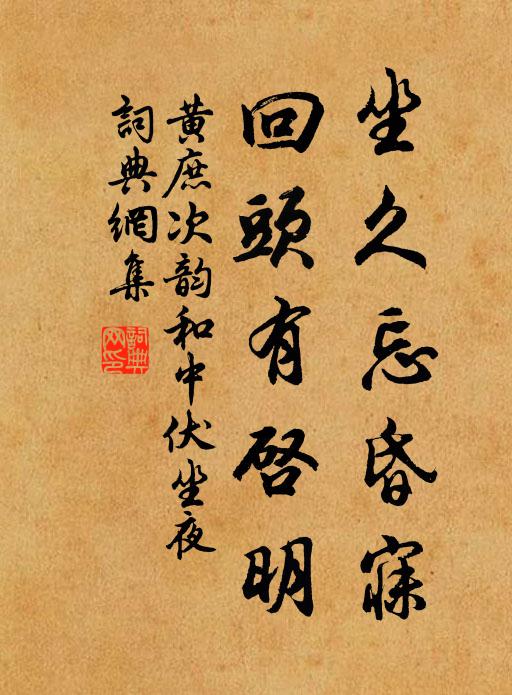 坐久忘昏寐
回頭有啓明
黄庶次韵和中伏坐夜
詞典網集
詞典
网印